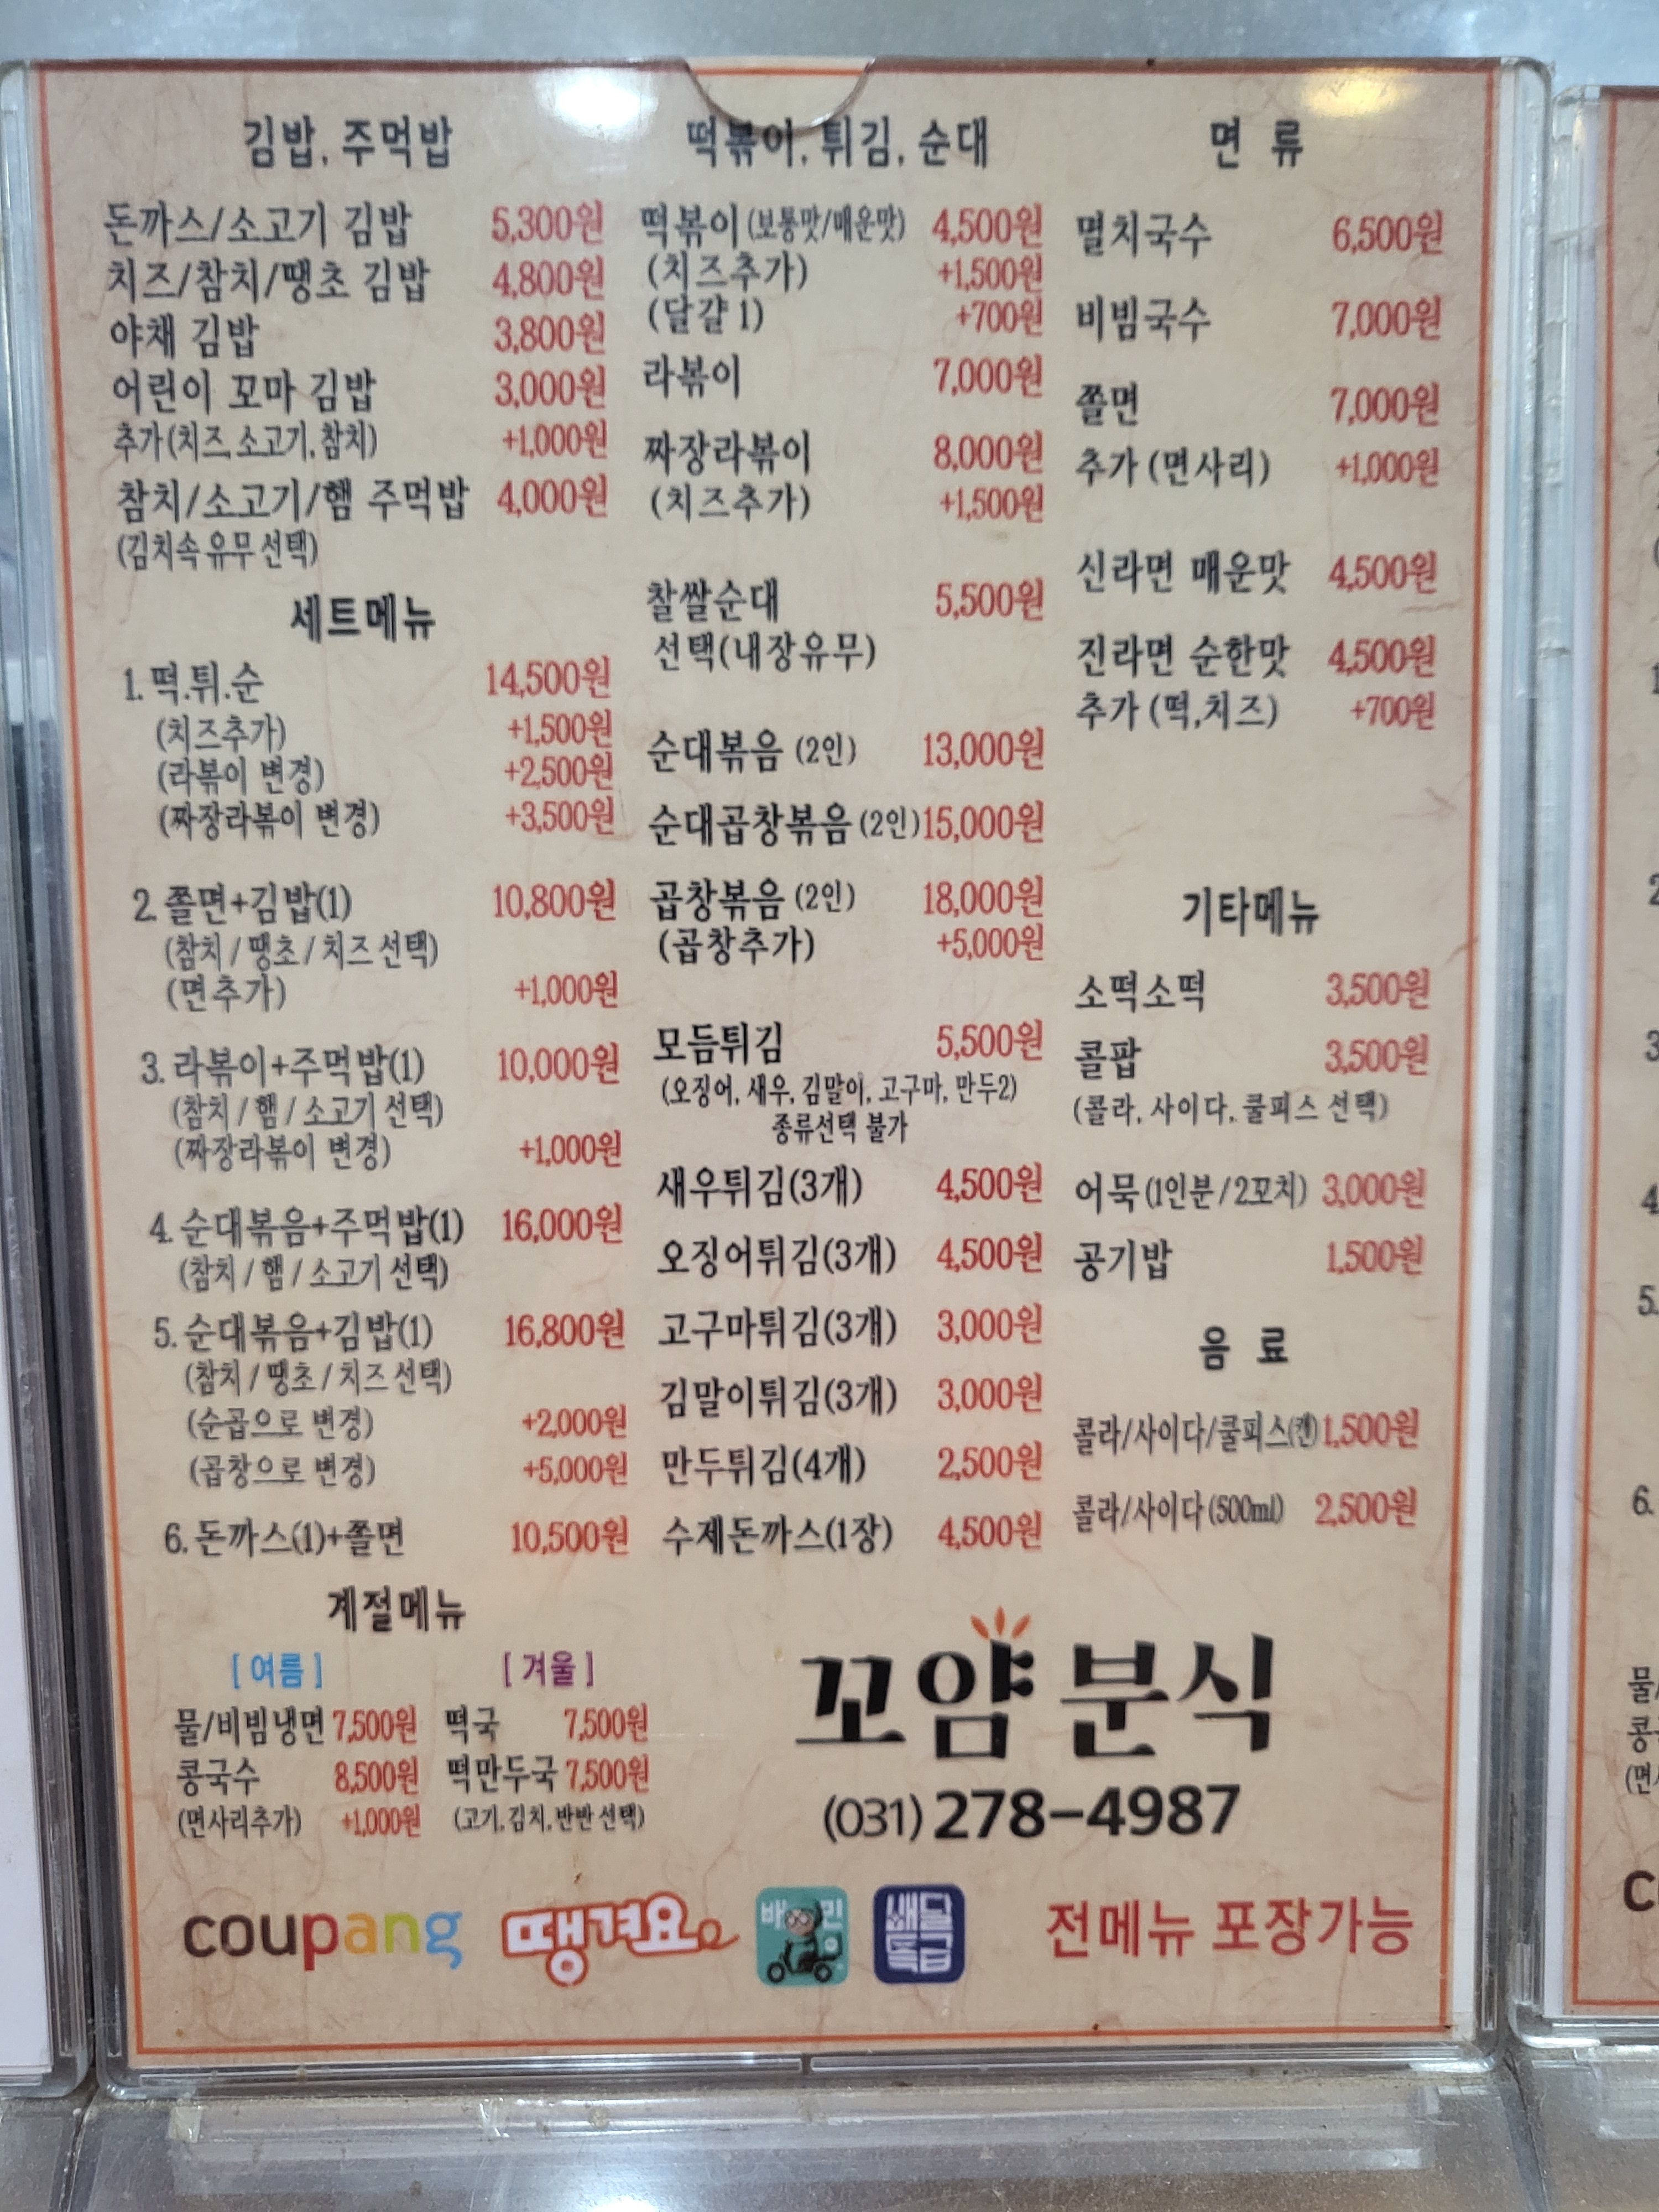 김밥, 주먹밥
돈까스/소고기 김밥 5,300원
치즈/참치/땡초 김밥 4,800원
야채 김밥 3,800원
어린이 꼬마 김밥 3,000원
추가(치즈,소고기,참치) +1,000원
참치/소고기/햄 주먹밥 4,000원
(김치속 유무 선택)
세트메뉴
1. 떡.튀.순 14,500원
(치즈추가) +1,500원
(라볶이 변경) +2,500원
(짜장라볶이 변경) +3,500원
2. 쫄면+김밥(1) 10,800원
(참치 / 땡초 / 치즈 선택)
(면추가) +1,000원
3. 라볶이+주먹밥(1) 10,000원
(참치 / 햄 / 소고기 선택)
(짜장라볶이 변경) +1,000원
4. 순대볶음+주먹밥(1) 16,000원
(참치 / 햄 / 소고기 선택)
5. 순대볶음+김밥(1) 16,800원
(참치 / 땡초 / 치즈 선택)
(순곱으로 변경) +2,000원
(곱창으로 변경) +5,000원
6. 돈까스(1)+쫄면 10,500원
계절메뉴
[ 여름 ]
물/비빔냉면 7,500원
콩국수 8,500원
(면사리추가) +1,000원
[ 겨울 ]
떡국 7,500원
떡만두국 7,500원
(고기,김치,반반 선택)
떡볶이, 튀김, 순대
떡볶이 (보통맛/매운맛) 4,500원
(치즈추가) +1,500원
(달걀 1) +700원
라볶이 7,000원
짜장라볶이 8,000원
(치즈추가) +1,500원
찰쌀순대 5,500원
선택(내장유무)
순대볶음 (2인) 13,000원
순대곱창볶음 (2인) 15,000원
곱창볶음 (2인) 18,000원
(곱창추가) +5,000원
모듬튀김 5,500원
(오징어, 새우, 김말이, 고구마, 만두2)
종류선택 불가
새우튀김(3개) 4,500원
오징어튀김(3개) 4,500원
고구마튀김(3개) 3,000원
김말이튀김(3개) 3,000원
만두튀김(4개) 2,500원
수제돈까스(1장) 4,500원
면 류
멸치국수 6,500원
비빔국수 7,000원
쫄면 7,000원
추가 (면사리) +1,000원
신라면 매운맛 4,500원
진라면 순한맛 4,500원
추가 (떡,치즈) +700원
기타메뉴
소떡소떡 3,500원
콜팝 3,500원
(콜라, 사이다, 쿨피스 선택)
어묵 (1인분/2꼬치) 3,000원
공기밥 1,500원
음 료
콜라/사이다/쿨피스(캔) 1,500원
콜라/사이다 (500ml) 2,500원
꼬얌 분식
(031) 278-4987
coupang
땡겨요
배민
배달특급
전메뉴 포장가능